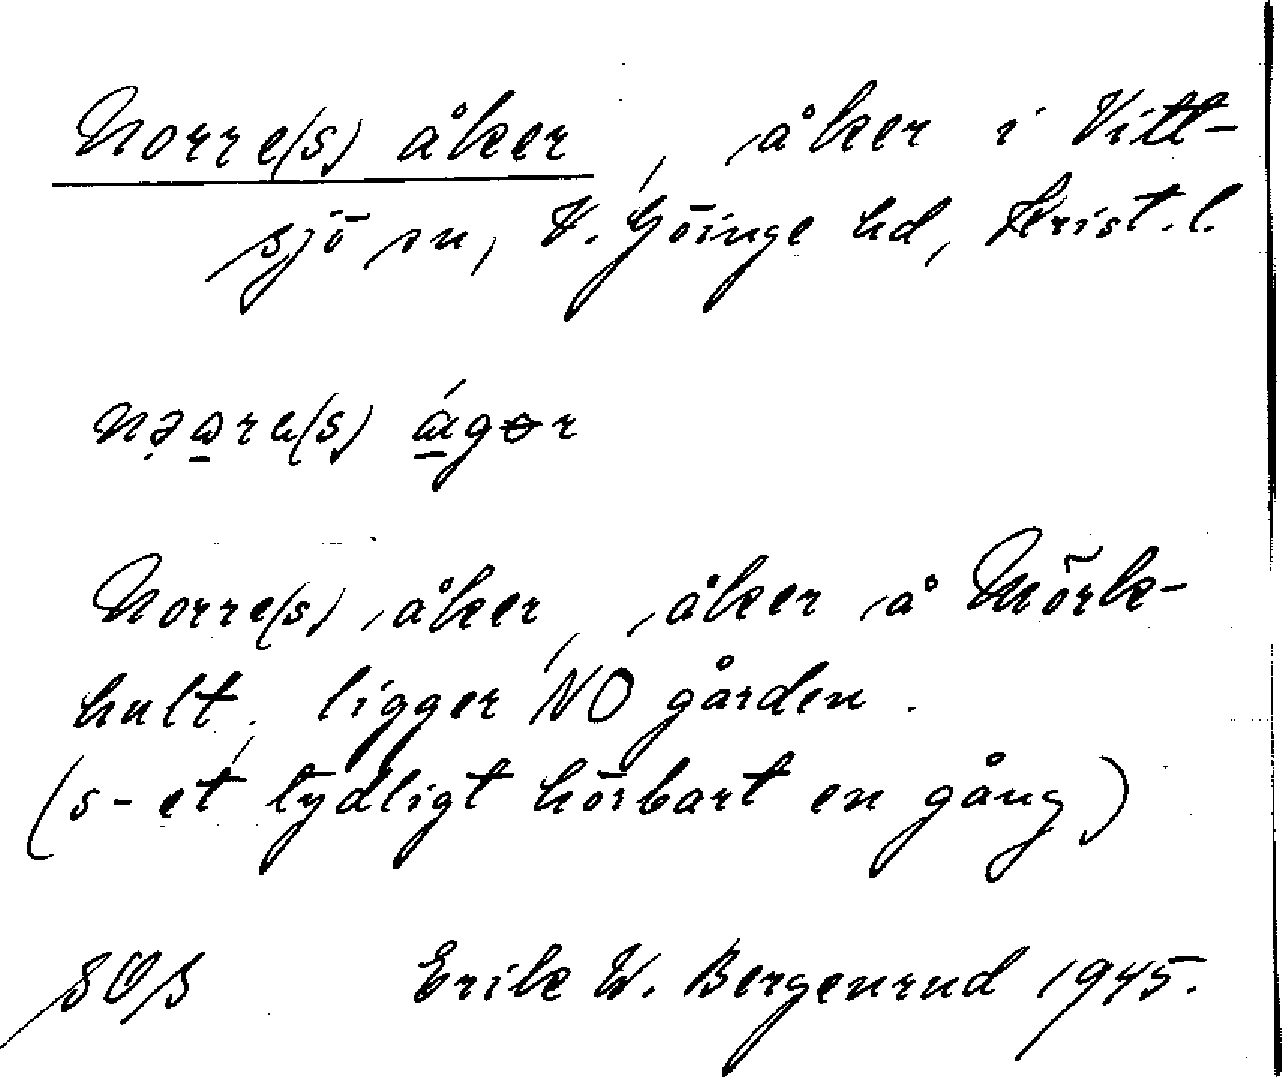 Norre(s) åker, åker i Vitt-
sjö sn, V. Göinge hd, Krist.l.
Norre(s) åker, åker å Mörk-
hult, ligger NO gården.
(s-et tydligt hörbart en gång)
Erik W. Bergenrud 1945.